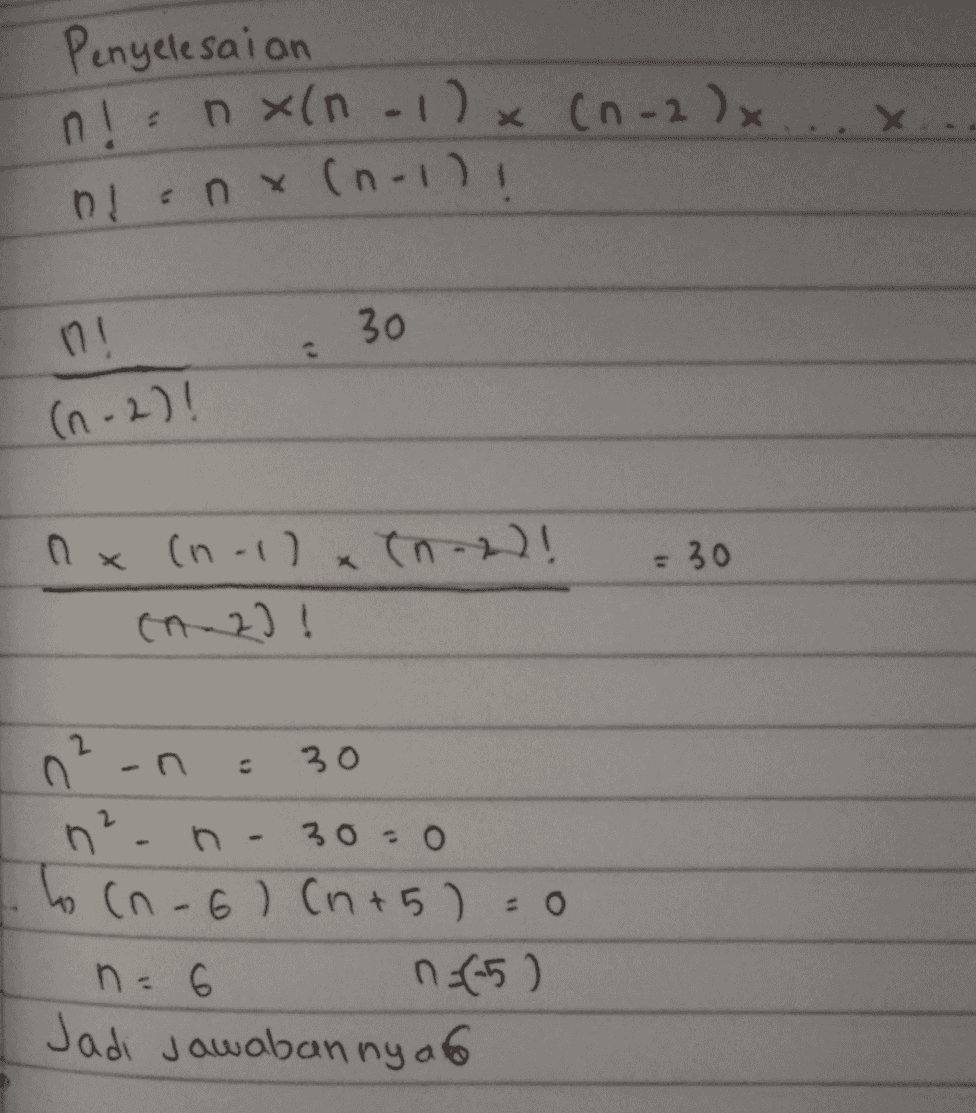 Penyelesaian
n! = n x (n - 1) x (n - 2) x ... x ...
n! = n x (n - 1)!
n! / (n - 2)! = 30
n x (n - 1) x (n - 2)! / (n - 2)! = 30
n² - n = 30
n² - n - 30 = 0
↳ (n - 6) (n + 5) = 0
n = 6 n = (-5)
Jadi Jawabannya 6